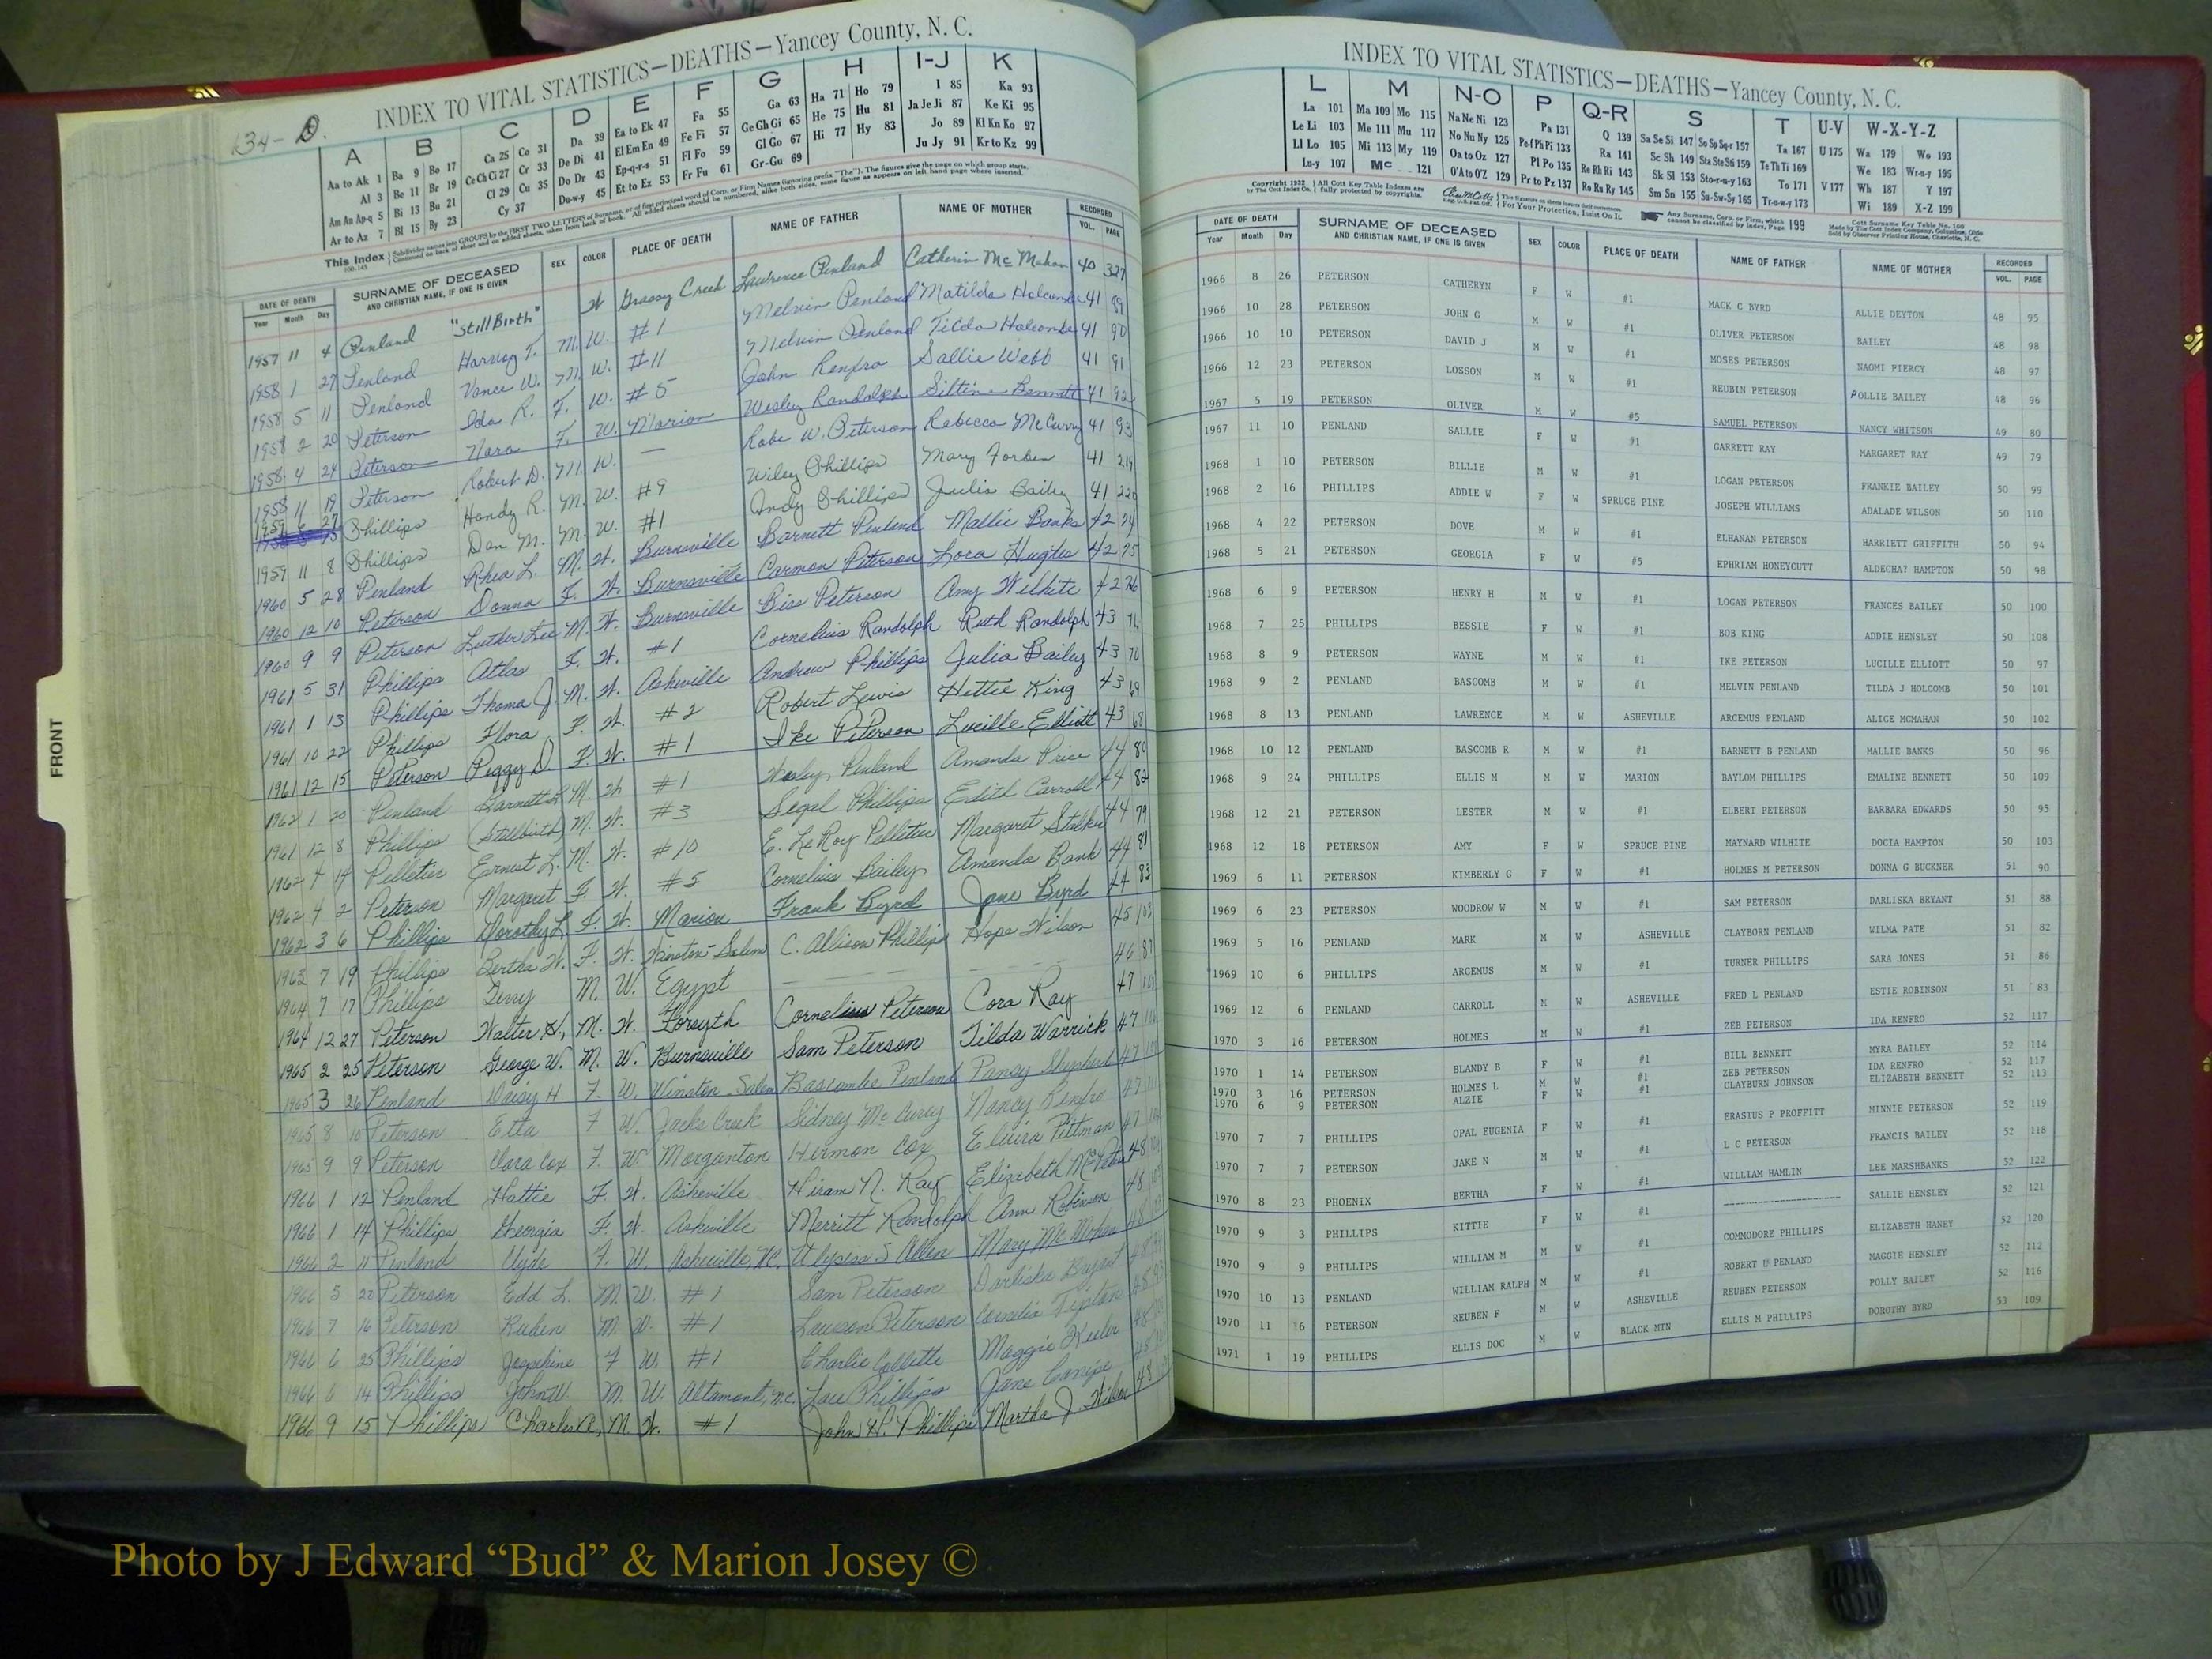 134- D.
INDEX TO VITAL STATISTICS—DEATHS—Yancey County, N. C.
A B C D E F G H I-J K
Aa to Ak 1 Ba 9 Bo 17 Ca 25 Co 31 Da 39 Ea to Ek 47 Fa 55 Ga 63 Ha 71 Ho 79 I 85 Ka 93
Al 3 Be 11 Br 19 Ce Ch Ci 27 Cr 33 De Di 41 El Em En 49 Fe Fi 57 Ge Gh Gi 65 He 75 Hu 81 Ja Je Ji 87 Ke Ki 95
Am An Ap-q 5 Bi 13 Bu 21 Cl 29 Cu 35 Do Dr 43 Ep-q-r-s 51 Fl Fo 59 Gl Go 67 Hi 77 Hy 83 Jo 89 Kl Kn Ko 97
Ar to Az 7 Bl 15 By 23 Cy 37 Du-w-y 45 Et to Ez 53 Fr Fu 61 Gr-Gu 69 Ju Jy 91 Kr to Kz 99
This Index
DATE OF DEATH SURNAME OF DECEASED AND CHRISTIAN NAME, IF ONE IS GIVEN SEX COLOR PLACE OF DEATH NAME OF FATHER NAME OF MOTHER RECORDED
Year Month Day VOL. PAGE
1957 11 4 Penland "StillBirth" W Grassy Creek Lawrence Penland Catherin McMahan 40 327
1958 1 27 Penland Harvey T. M. W. #1 Melvin Penland Matilda Holcombe 41 89
1958 5 11 Penland Vance W. M. W. #11 Melvin Penland Tilda Holcombe 41 90
1958 2 20 Peterson Ida R. F. W. #5 John Renfro Sallie Webb 41 91
1958 4 24 Peterson Nara F. W. Marion Wesley Randolph Bennett 41 92
1958 11 19 Peterson Robert D. M. W. — Robe W. Peterson Rebecca McCurry 41 93
1959 6 27 Phillips Handy R. M. W. #9 Wiley Phillips Mary Forbes 41 219
1959 11 8 Phillips Dan M. M. W. #1 Andy Phillips Julia Bailey 41 220
1960 5 28 Penland Rhea L. M. W. Burnsville Barnett Penland Mallie Banks 42 74
1960 12 10 Peterson Donna F. W. Burnsville Carmon Peterson Lora Hughes 42 75
1960 9 9 Peterson Luther Lee M. W. Burnsville Biss Peterson Amy Wilhite 42 76
1961 5 31 Phillips Atlas F. W. #1 Cornelius Randolph Ruth Randolph 43 71
1961 1 13 Phillips Thoma J. M. W. Asheville Andrew Phillips Julia Bailey 43 70
1961 10 22 Phillips Flora F. W. #2 Robert Lewis Hettie King 43 69
1961 12 15 Peterson Peggy D. F W. #1 Ike Peterson Lucille Elliott 43 68
1962 1 20 Penland Barnett B M. W #1 Wesley Penland Amanda Price 44 80
1961 12 8 Phillips (Stillbirth) M. W. #3 Segal Phillips Edith Carroll 44 82
1962 4 14 Pelletier Earnest L. M. W. #10 E. LeRoy Pelletier Margaret Stalker 44 79
1962 4 2 Peterson Margaret F. W. #5 Cornelius Bailey Amanda Bank 44 81
1962 3 6 Phillips Dorothy L. F. W. Marion Frank Byrd Jane Byrd 44 83
1963 7 19 Phillips Bertha W. F. W. Winston-Salem C. Allison Phillips Hope Wilson 45 103
1964 7 17 Phillips Terry M. W. Egypt — — — — 46 87
1964 12 27 Peterson Walter H. M. W. Forsyth Cornelius Peterson Cora Ray 47
1965 2 25 Peterson George W. M. W. Burnsville Sam Peterson Tilda Warrick 47
1965 3 26 Penland Daisy H F. W. Winston-Salem Bascombe Penland Pansy Shepherd 47
1965 8 10 Peterson Etta F W. Jacks Creek Sidney McCurry Nancy Renfro 47
1965 9 9 Peterson Clara Cox F. W. Morganton Hirmon Cox Elvira Pittman 47
1966 1 12 Penland Hattie F. W. Asheville Hiram N. Ray Elizabeth 48
1966 1 14 Phillips Georgia F. W. Asheville Merritt Randolph Ann Robinson 48
1966 2 11 Penland Clyde F. W. Asheville, NC. Ulysess S Allen Mary McMahan 48
1966 5 22 Peterson Edd L. M. W. #1 Sam Peterson Darliska Bryant 48
1966 7 16 Peterson Ruben M. W. #1 Lawson Peterson Cornelia Tipton 48
1966 6 25 Phillips Josephine F W. #1 Charlie Collette Maggie 48
1966 6 14 Phillips John W. M. W. Altamont, N.C. Phillips Jane 48
1966 9 15 Phillips Charles A. M. W. #1 John H. Phillips Martha J. 48
FRONT
INDEX TO VITAL STATISTICS—DEATHS—Yancey County, N. C.
L M N-O P Q-R S T U-V W-X-Y-Z
La 101 Ma 109 Mo 115 Na Ne Ni 123 Pa 131 Q 139 Sa Se Si 147 So Sp Sq-r 157 Ta 167 U 175 Wa 179 Wo 193
Le Li 103 Me 111 Mu 117 No Nu Ny 125 Pe-f Ph Pi 133 Ra 141 Sc Sh 149 Sta Ste Sti 159 Te Th Ti 169 We 183 Wr-u-y 195
Ll Lo 105 Mi 113 My 119 Oa to Oz 127 Pl Po 135 Re Rh Ri 143 Sk Sl 153 Sto-r-u-y 163 To 171 V 177 Wh 187 Y 197
Lu-y 107 Mc 121 O'A to O'Z 129 Pr to Pz 137 Ro Ru Ry 145 Sm Sn 155 Su-Sw-Sy 165 Tr-u-w-y 173 Wi 189 X-Z 199
Copyright 1922 by The Cott Index Co. All Cott Key Table Indexes are fully protected by copyrights. For Your Protection, Insist On It. Any Surname, Corp. or Firm, which cannot be classified by Index, Page 199 Cott Surname Key Table No. 100
DATE OF DEATH SURNAME OF DECEASED AND CHRISTIAN NAME, IF ONE IS GIVEN SEX COLOR PLACE OF DEATH NAME OF FATHER NAME OF MOTHER RECORDED
Year Month Day VOL. PAGE
1966 8 26 PETERSON CATHERYN F W #1 MACK C BYRD ALLIE DEYTON 48 95
1966 10 28 PETERSON JOHN G M W #1 OLIVER PETERSON BAILEY 48 98
1966 10 10 PETERSON DAVID J M W #1 MOSES PETERSON NAOMI PIERCY 48 97
1966 12 23 PETERSON LOSSON M W #1 REUBIN PETERSON POLLIE BAILEY 48 96
1967 5 19 PETERSON OLIVER M W #5 SAMUEL PETERSON NANCY WHITSON 49 80
1967 11 10 PENLAND SALLIE F W #1 GARRETT RAY MARGARET RAY 49 79
1968 1 10 PETERSON BILLIE M W #1 LOGAN PETERSON FRANKIE BAILEY 50 99
1968 2 16 PHILLIPS ADDIE W F W SPRUCE PINE JOSEPH WILLIAMS ADALADE WILSON 50 110
1968 4 22 PETERSON DOVE M W #1 ELHANAN PETERSON HARRIETT GRIFFITH 50 94
1968 5 21 PETERSON GEORGIA F W #5 EPHRIAM HONEYCUTT ALDECHA? HAMPTON 50 98
1968 6 9 PETERSON HENRY H M W #1 LOGAN PETERSON FRANCES BAILEY 50 100
1968 7 25 PHILLIPS BESSIE F W #1 BOB KING ADDIE HENSLEY 50 108
1968 8 9 PETERSON WAYNE M W #1 IKE PETERSON LUCILLE ELLIOTT 50 97
1968 9 2 PENLAND BASCOMB M W #1 MELVIN PENLAND TILDA J HOLCOMB 50 101
1968 8 13 PENLAND LAWRENCE M W ASHEVILLE ARCEMUS PENLAND ALICE MCMAHAN 50 102
1968 10 12 PENLAND BASCOMB R M W #1 BARNETT B PENLAND MALLIE BANKS 50 96
1968 9 24 PHILLIPS ELLIS M M W MARION BAYLOM PHILLIPS EMALINE BENNETT 50 109
1968 12 21 PETERSON LESTER M W #1 ELBERT PETERSON BARBARA EDWARDS 50 95
1968 12 18 PETERSON AMY F W SPRUCE PINE MAYNARD WILHITE DOCIA HAMPTON 50 103
1969 6 11 PETERSON KIMBERLY G F W #1 HOLMES M PETERSON DONNA G BUCKNER 51 90
1969 6 23 PETERSON WOODROW W M W #1 SAM PETERSON DARLISKA BRYANT 51 88
1969 5 16 PENLAND MARK M W ASHEVILLE CLAYBORN PENLAND WILMA PATE 51 82
1969 10 6 PHILLIPS ARCEMUS M W #1 TURNER PHILLIPS SARA JONES 51 86
1969 12 6 PENLAND CARROLL M W ASHEVILLE FRED L PENLAND ESTIE ROBINSON 51 83
1970 3 16 PETERSON HOLMES M W #1 ZEB PETERSON IDA RENFRO 52 117
1970 1 14 PETERSON BLANDY B F W #1 BILL BENNETT MYRA BAILEY 52 114
1970 3 16 PETERSON HOLMES L M W #1 ZEB PETERSON IDA RENFRO 52 117
1970 6 9 PETERSON ALZIE F W #1 CLAYBURN JOHNSON ELIZABETH BENNETT 52 113
1970 7 7 PHILLIPS OPAL EUGENIA F W #1 ERASTUS P PROFFITT MINNIE PETERSON 52 119
1970 7 7 PETERSON JAKE N M W #1 L C PETERSON FRANCIS BAILEY 52 118
1970 8 23 PHOENIX BERTHA F W #1 WILLIAM HAMLIN LEE MARSHBANKS 52 122
1970 9 3 PHILLIPS KITTIE F W #1 -------------------- SALLIE HENSLEY 52 121
1970 9 9 PHILLIPS WILLIAM M M W #1 COMMODORE PHILLIPS ELIZABETH HANEY 52 120
1970 10 13 PENLAND WILLIAM RALPH M W #1 ROBERT PENLAND MAGGIE HENSLEY 52 112
1970 11 6 PETERSON REUBEN F M W ASHEVILLE REUBEN PETERSON POLLY BAILEY 52 116
1971 1 19 PHILLIPS ELLIS DOC M W BLACK MTN ELLIS M PHILLIPS DOROTHY BYRD 53 109
Photo by J Edward “Bud” & Marion Josey ©